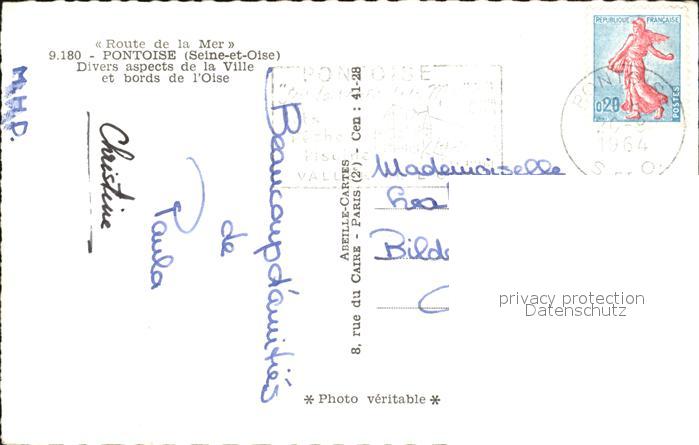 « Route de la Mer »
9.180 - PONTOISE (Seine-et-Oise)
Divers aspects de la Ville
et bords de l'Oise
M.H.P.
Christine
Beaucoup d'amitiés
de
Paula
ABEILLE-CARTES
8, rue du CAIRE - PARIS (2e) - Cen : 41-28
PONTOISE
VALL
REPUBLIQUE FRANÇAISE
0,20
POSTES
PONTOISE
1964
S. O.
Mademoiselle
Bild
privacy protection
Datenschutz
* Photo véritable *